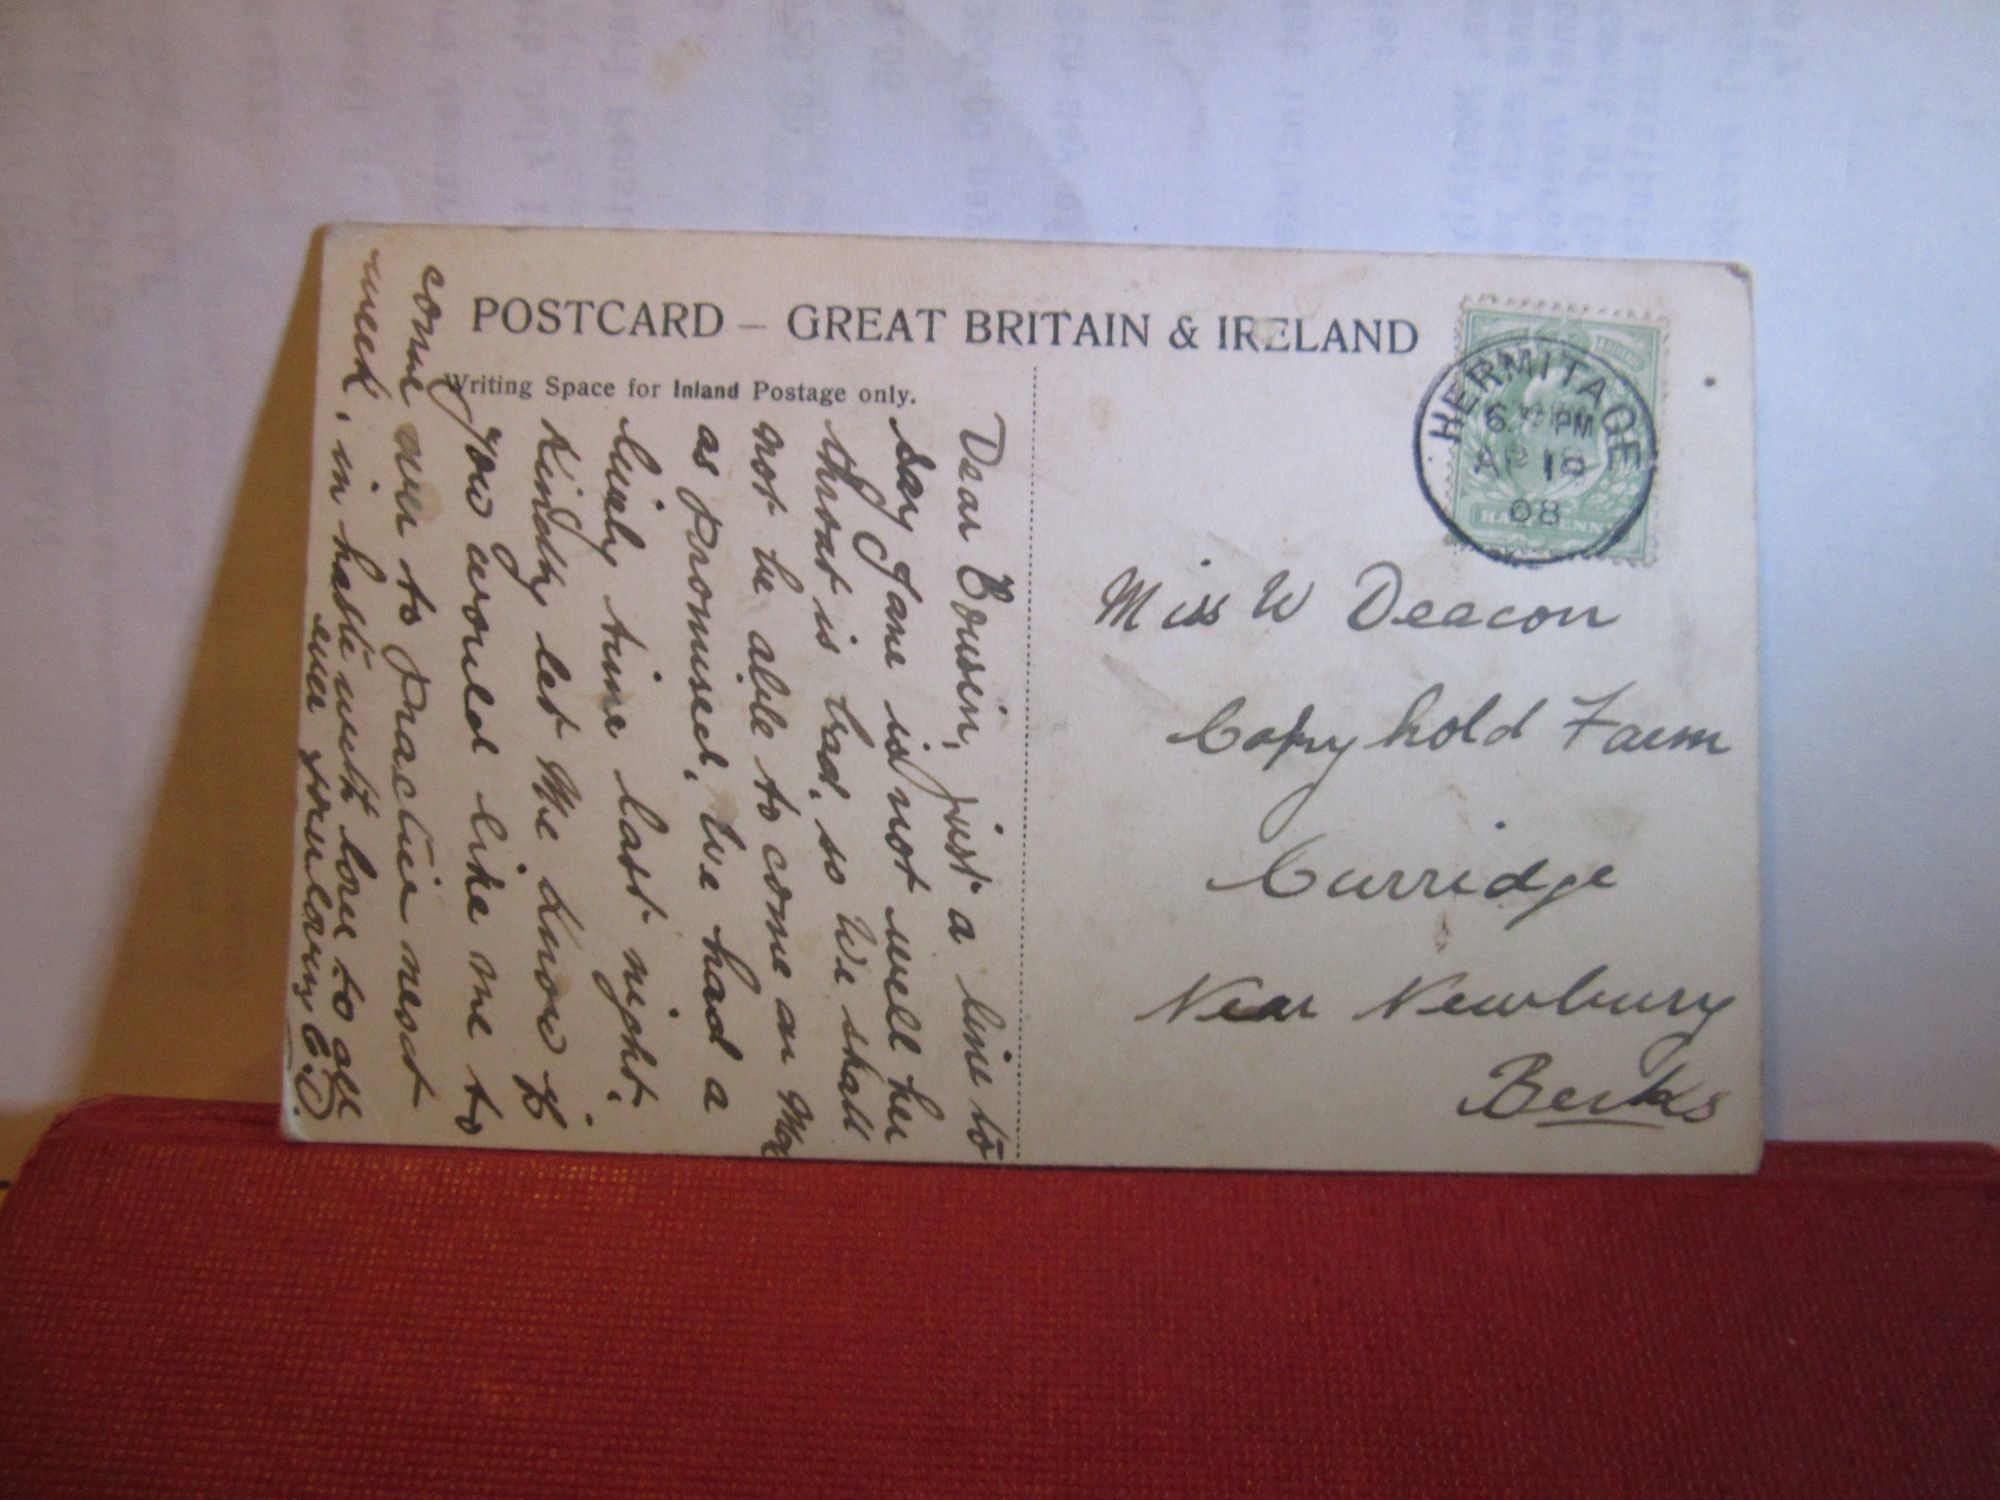 POSTCARD – GREAT BRITAIN & IRELAND
Writing Space for Inland Postage only.
Dear Cousin, just a line to
say Jane is not well her
throat is bad, so We shall
not be able to come on
as promised, We had a
lively time last night.
Kindly let Me know if
you would like me to
come over to practice next
week, in haste with love to all
ever your loving C.D.
HERMITAGE
6 PM
AP 18
08
HALFPENNY
Miss W Deacon
Copyhold Farm
Curridge
Near Newbury
Berks